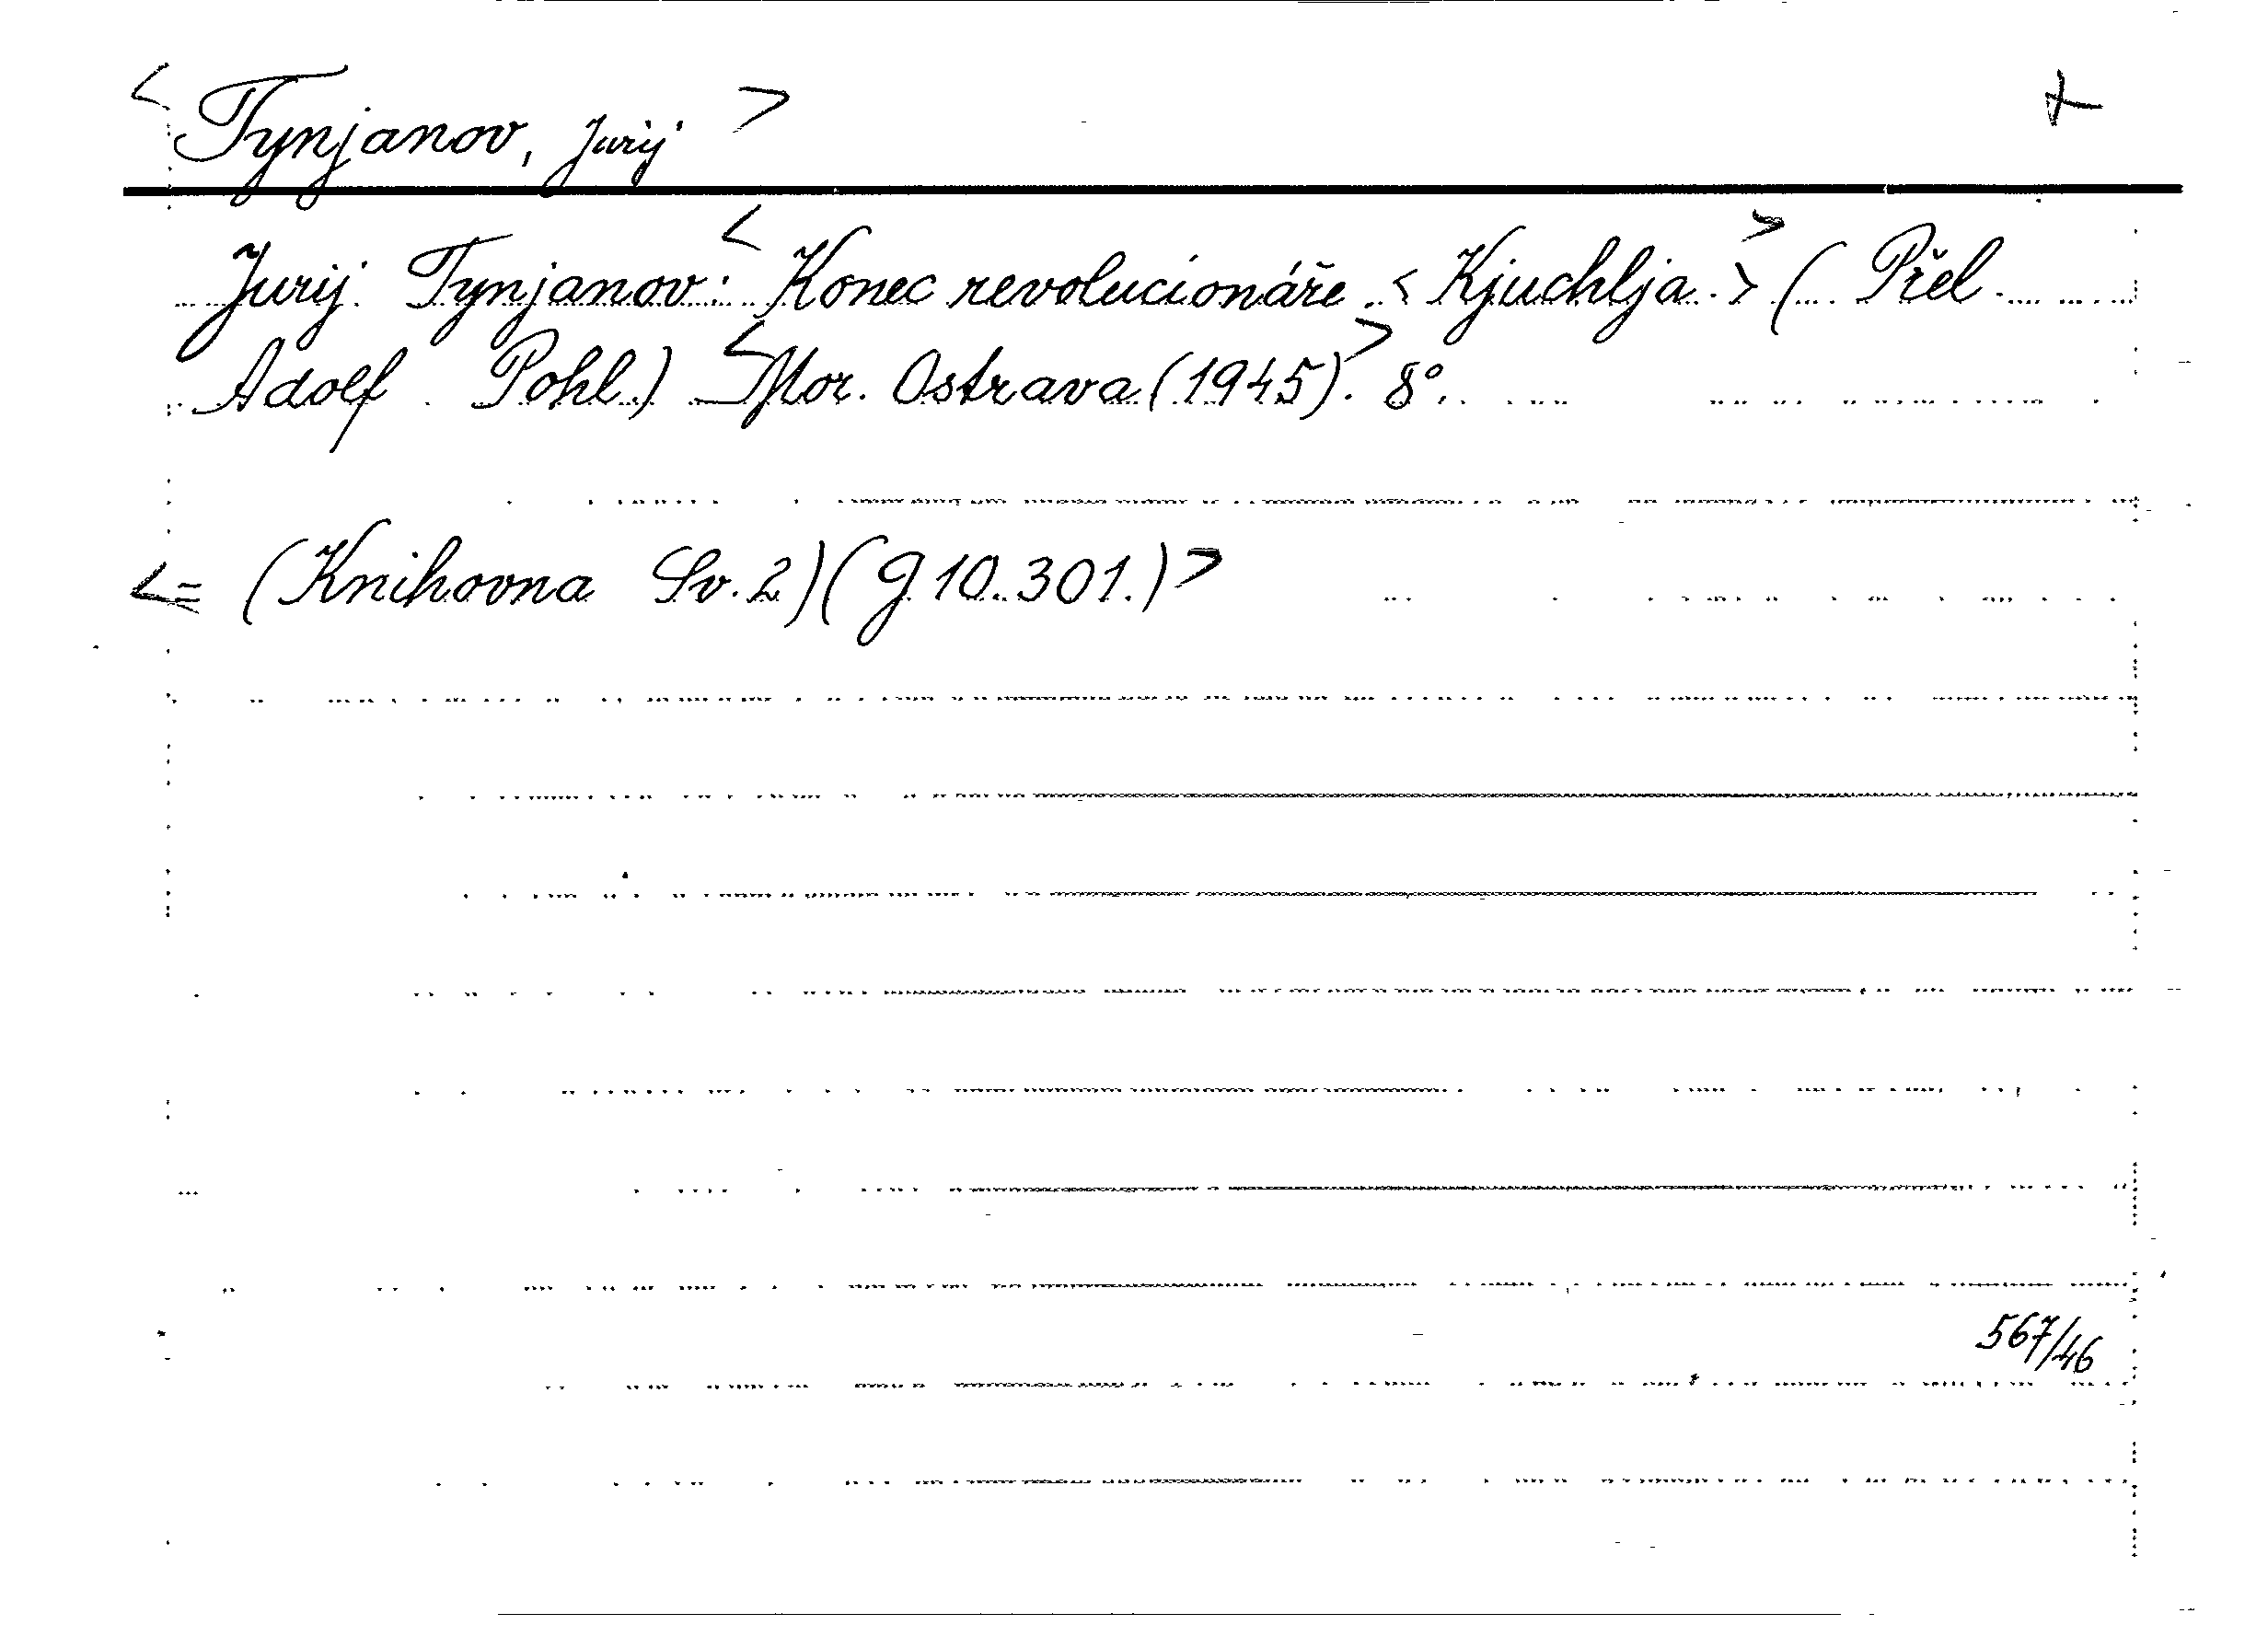 < Tynjanov, Jurij > +
Jurij Tynjanov: < Konec revolucionáře. < Kjuchlja. > > ( Přel.
Adolf Pohl.) < Mor. Ostrava (1945). > 8°.
< = (Knihovna Sv. 2) (g 10.301.) >
567/46